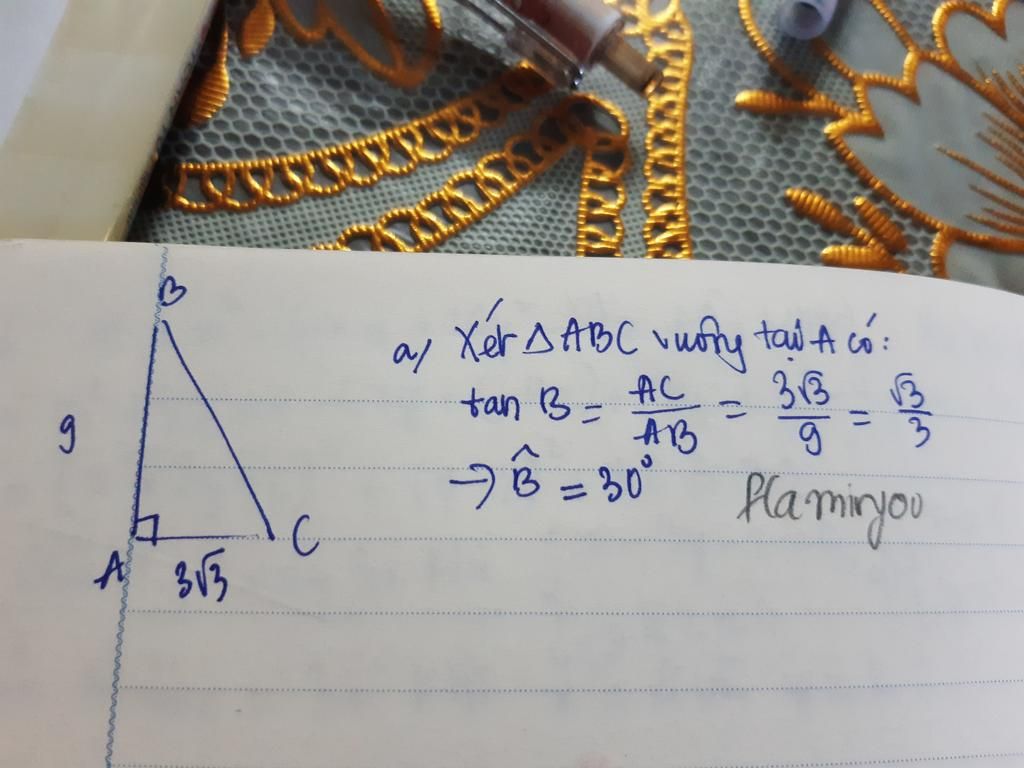 B
9
A
3√3
C
a) Xét △ABC vuông tại A có:
tan B = AC/AB = 3√3/9 = √3/3
→ B̂ = 30°
Flaminyou